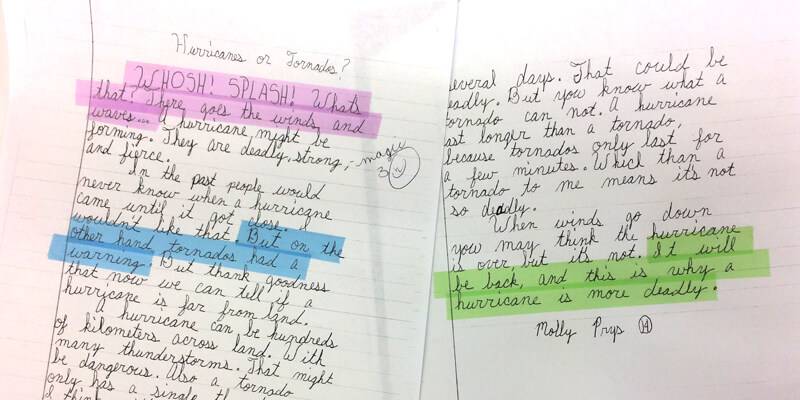 Hurricanes or Tornados?
WHOSH! SPLASH! Whats
that? There goes the winds and
waves... A hurricane might be
forming. They are deadly, strong,
and fierce.
magic
3
In the past people would
never know when a hurricane
came until it got close. I
wouldn't like that. But on the
other hand tornados had a
warning. But thank goodness
that now we can tell if a
hurricane is far from land.
A hurricane can be hundreds
of kilometers across land. With
many thunderstorms. That might
be dangerous. Also a tornado
only has a single
I think
several days. That could be
deadly. But you know what a
tornado can not. A hurricane
last longer than a tornado,
because tornados only last for
a few minutes. Which than a
tornado to me means its not
so deadly.
When winds go down
you may think the hurricane
is over but its not. It will
be back, and this is why a
hurricane is more deadly.
Molly Prys 14